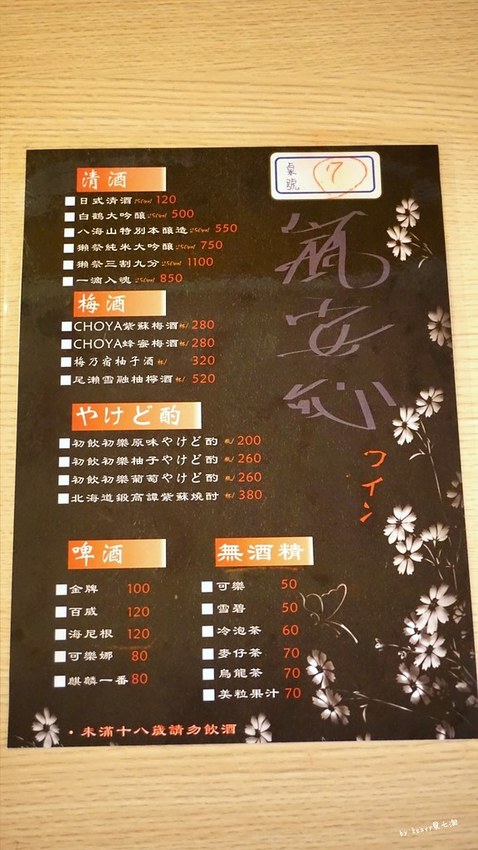 桌號 7
清酒
日式清酒 150ml 120
白鶴大吟釀 250ml 500
八海山特別本釀造 250ml 550
獺祭純米大吟釀 250ml 750
獺祭三割九分 250ml 1100
一滴入魂 250ml 850
梅酒
CHOYA紫蘇梅酒 杯/ 280
CHOYA蜂蜜梅酒 杯/ 280
梅乃宿柚子酒 杯/ 320
尾瀨雪融柚檸酒 杯/ 520
やけど酌
初飲初樂原味やけど酌 瓶/ 200
初飲初樂柚子やけど酌 瓶/ 260
初飲初樂葡萄やけど酌 瓶/ 260
北海道鍛高譚紫蘇燒酎 瓶/ 380
ワイン
啤酒
金牌 100
百威 120
海尼根 120
可樂娜 80
麒麟一番 80
無酒精
可樂 50
雪碧 50
冷泡茶 60
麥仔茶 70
烏龍茶 70
美粒果汁 70
・未滿十八歲請勿飲酒